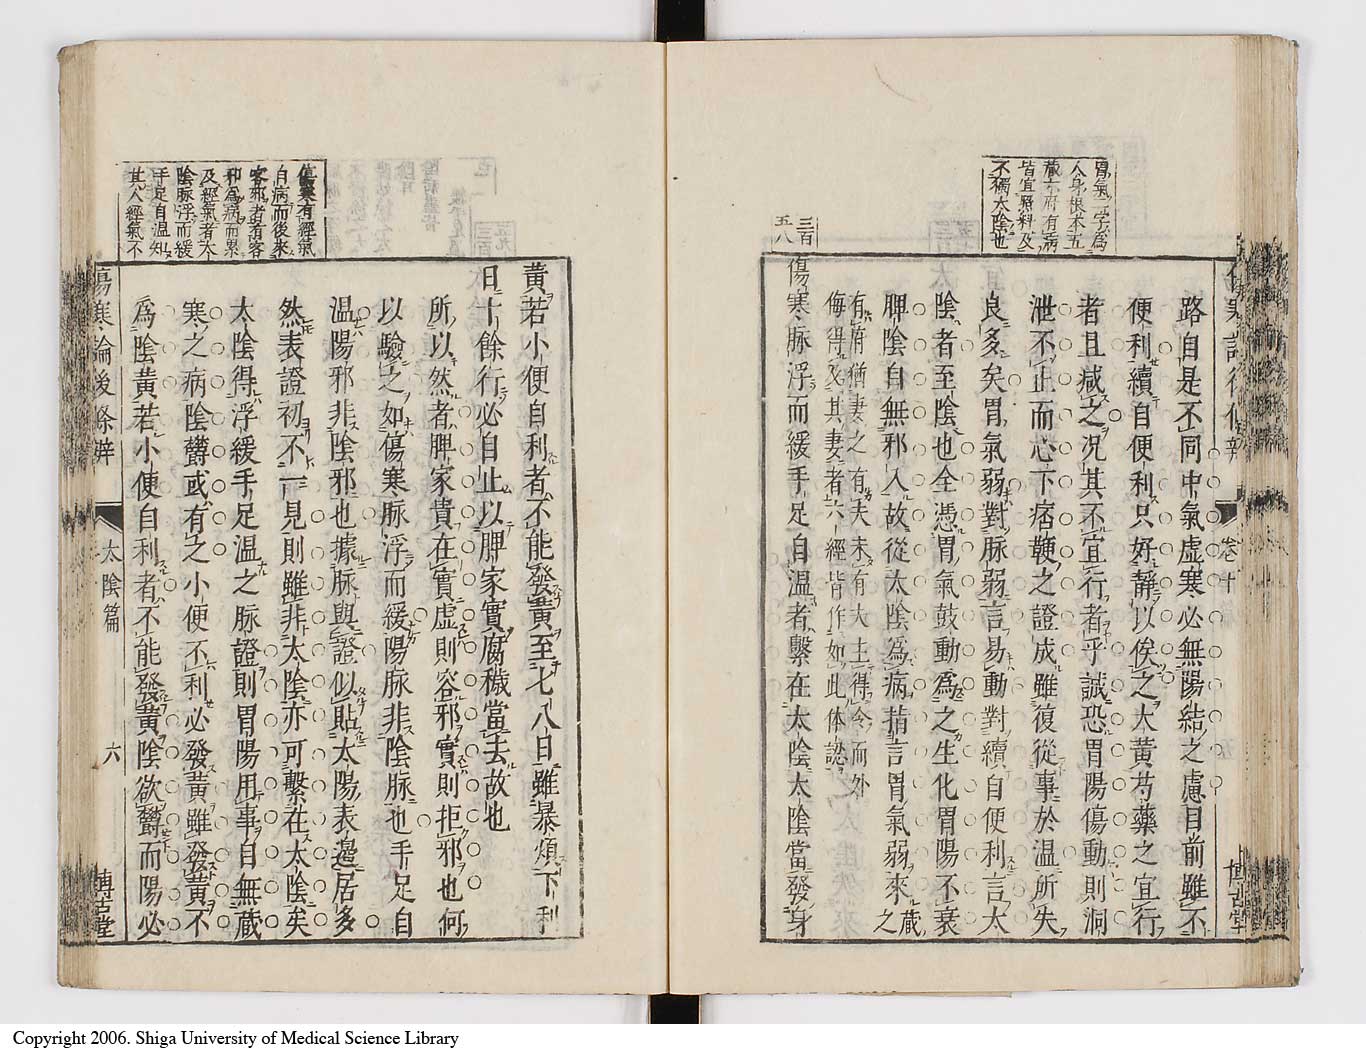 胃氣二字爲
人身根本五
藏六府有病
皆宜照料及
不獨太陰也
路自是不同中氣虛寒必無陽結之慮目前雖不
便利續自便利只好靜以俟之大黃芍藥之宜行
者且减之況其不宜行者乎誠恐胃陽傷動則洞
泄不止而心下痞鞕之證成雖復從事於溫所失
良多矣胃氣弱對脉弱言易動對續自便利言太
陰者至陰也全憑胃氣鼓動爲之生化胃陽不衰
脾陰自無邪入故從太陰爲病指言胃氣弱來藏之
有府猶妻之有夫未有夫主得令而外
侮得及其妻者六經皆作如此体認
三百
五八
傷寒脉浮而緩手足自溫者繫在太陰太陰當發身
卷十
博古堂
傷寒有經氣
自病而後來
客邪者有客
邪爲病而累
及經氣者太
陰脉浮而緩
手足自溫知
其人經氣不
黃若小便自利者不能發黃至七八日雖暴煩下利
日十餘行必自止以脾家實腐穢當去故也
所以然者脾家貴在實虛則容邪實則拒邪也何
以驗之如傷寒脉浮而緩陽脉非陰脉也手足自
溫陽邪非陰邪也據脉與證似貼太陽表邊居多
然表證初不一見則雖非太陰亦可繫在太陰矣
太陰得浮緩手足溫之脉證則胃陽用事自無藏
寒之病陰鬱或有之小便不利必發黃雖發黃不
爲陰黃若小便自利者不能發黃陰欲鬱而陽必
傷寒論後條辨
太陰篇
六
博古堂
Copyright 2006. Shiga University of Medical Science Library